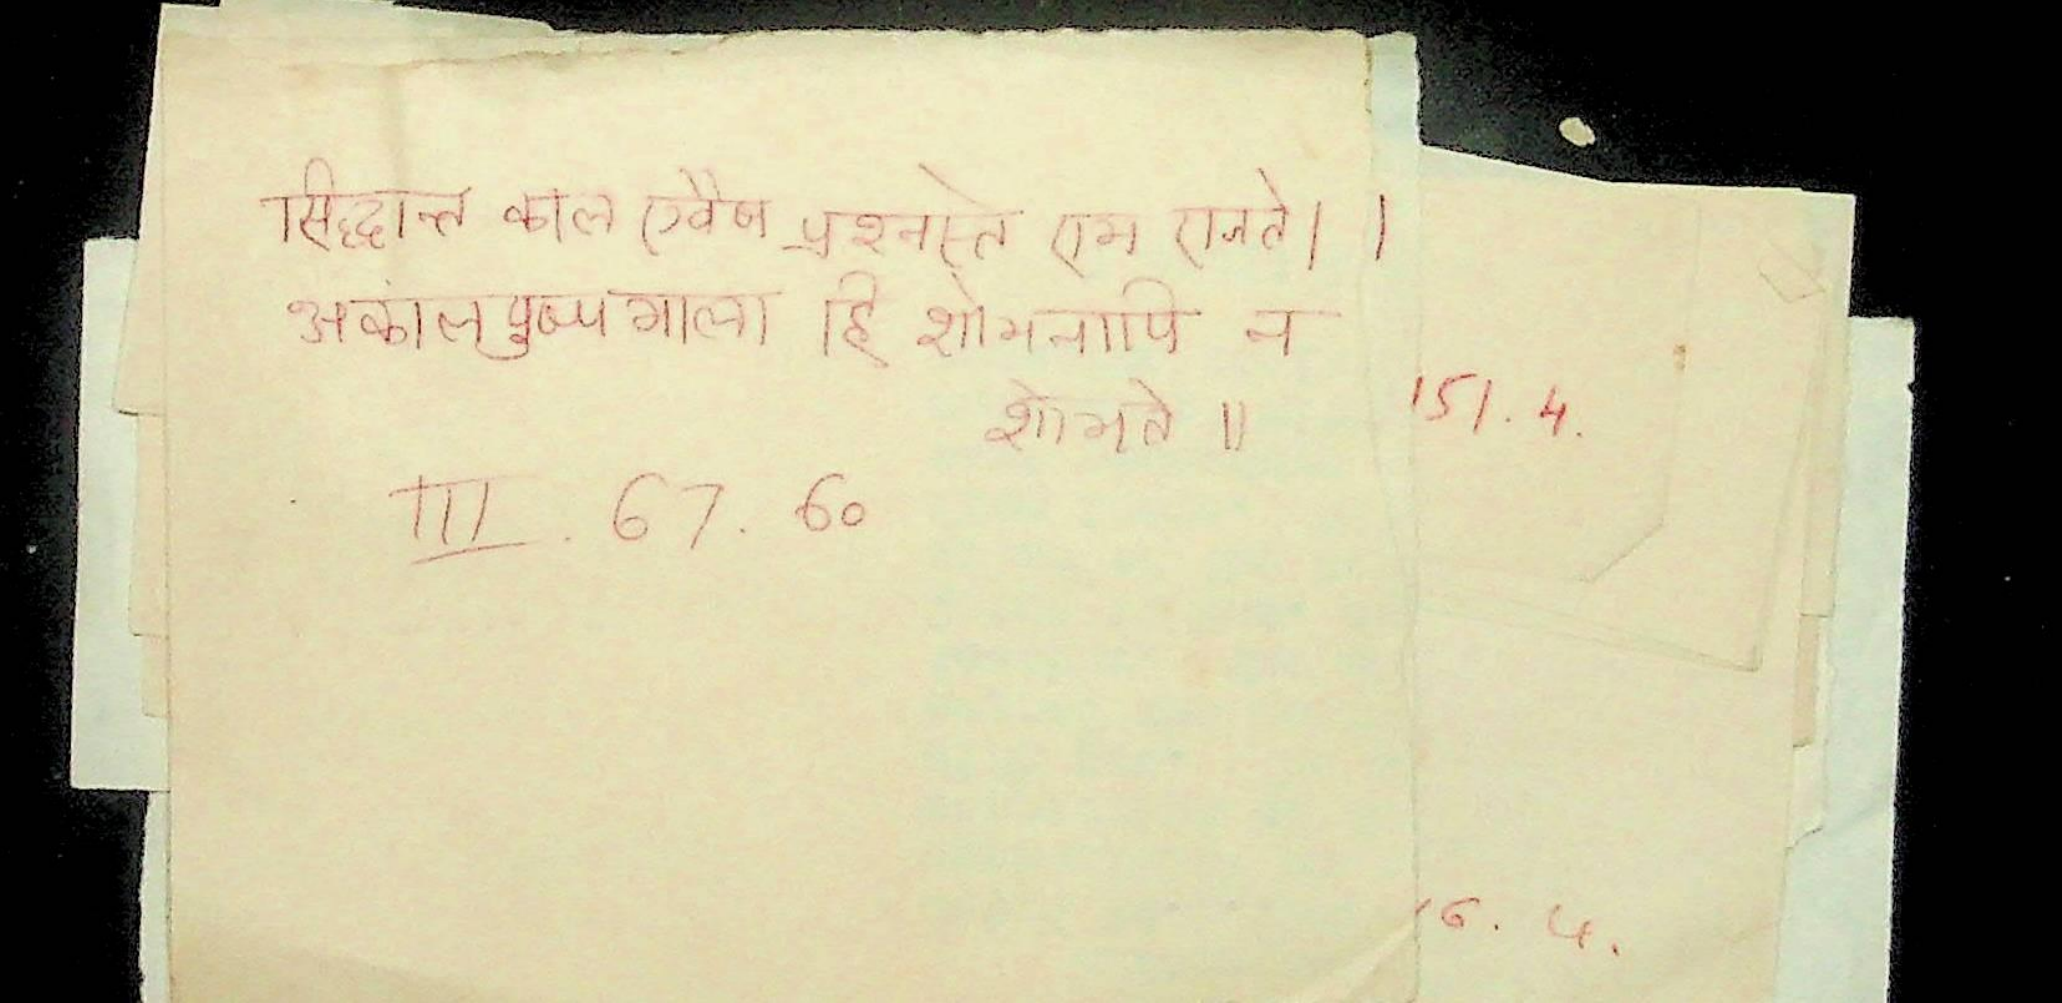 सिद्धान्त काल एवैष प्रश्नस्ते राम राजते । ।
अकालपुष्पमाला हि शोभनापि न
शोभते ॥
151. 4.
III . 67. 60
16. 4.